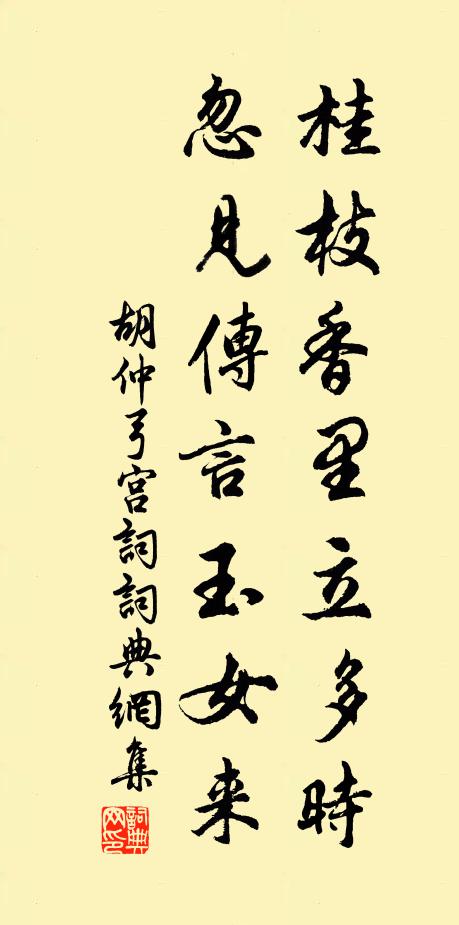 桂枝香里立多時
忽見傳言玉女来
胡仲弓宫詞詞典網集
詞典网印